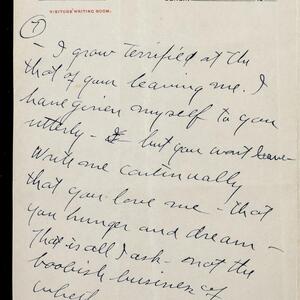 VISITORS' WRITING ROOM.
7
- I grow terrified at the
that of your leaving me. I
have given myself to you
utterly - but you wont leave -
Write me continually
that you love me - that
you hunger and dream -
That is all I ask - not the
boobish business of